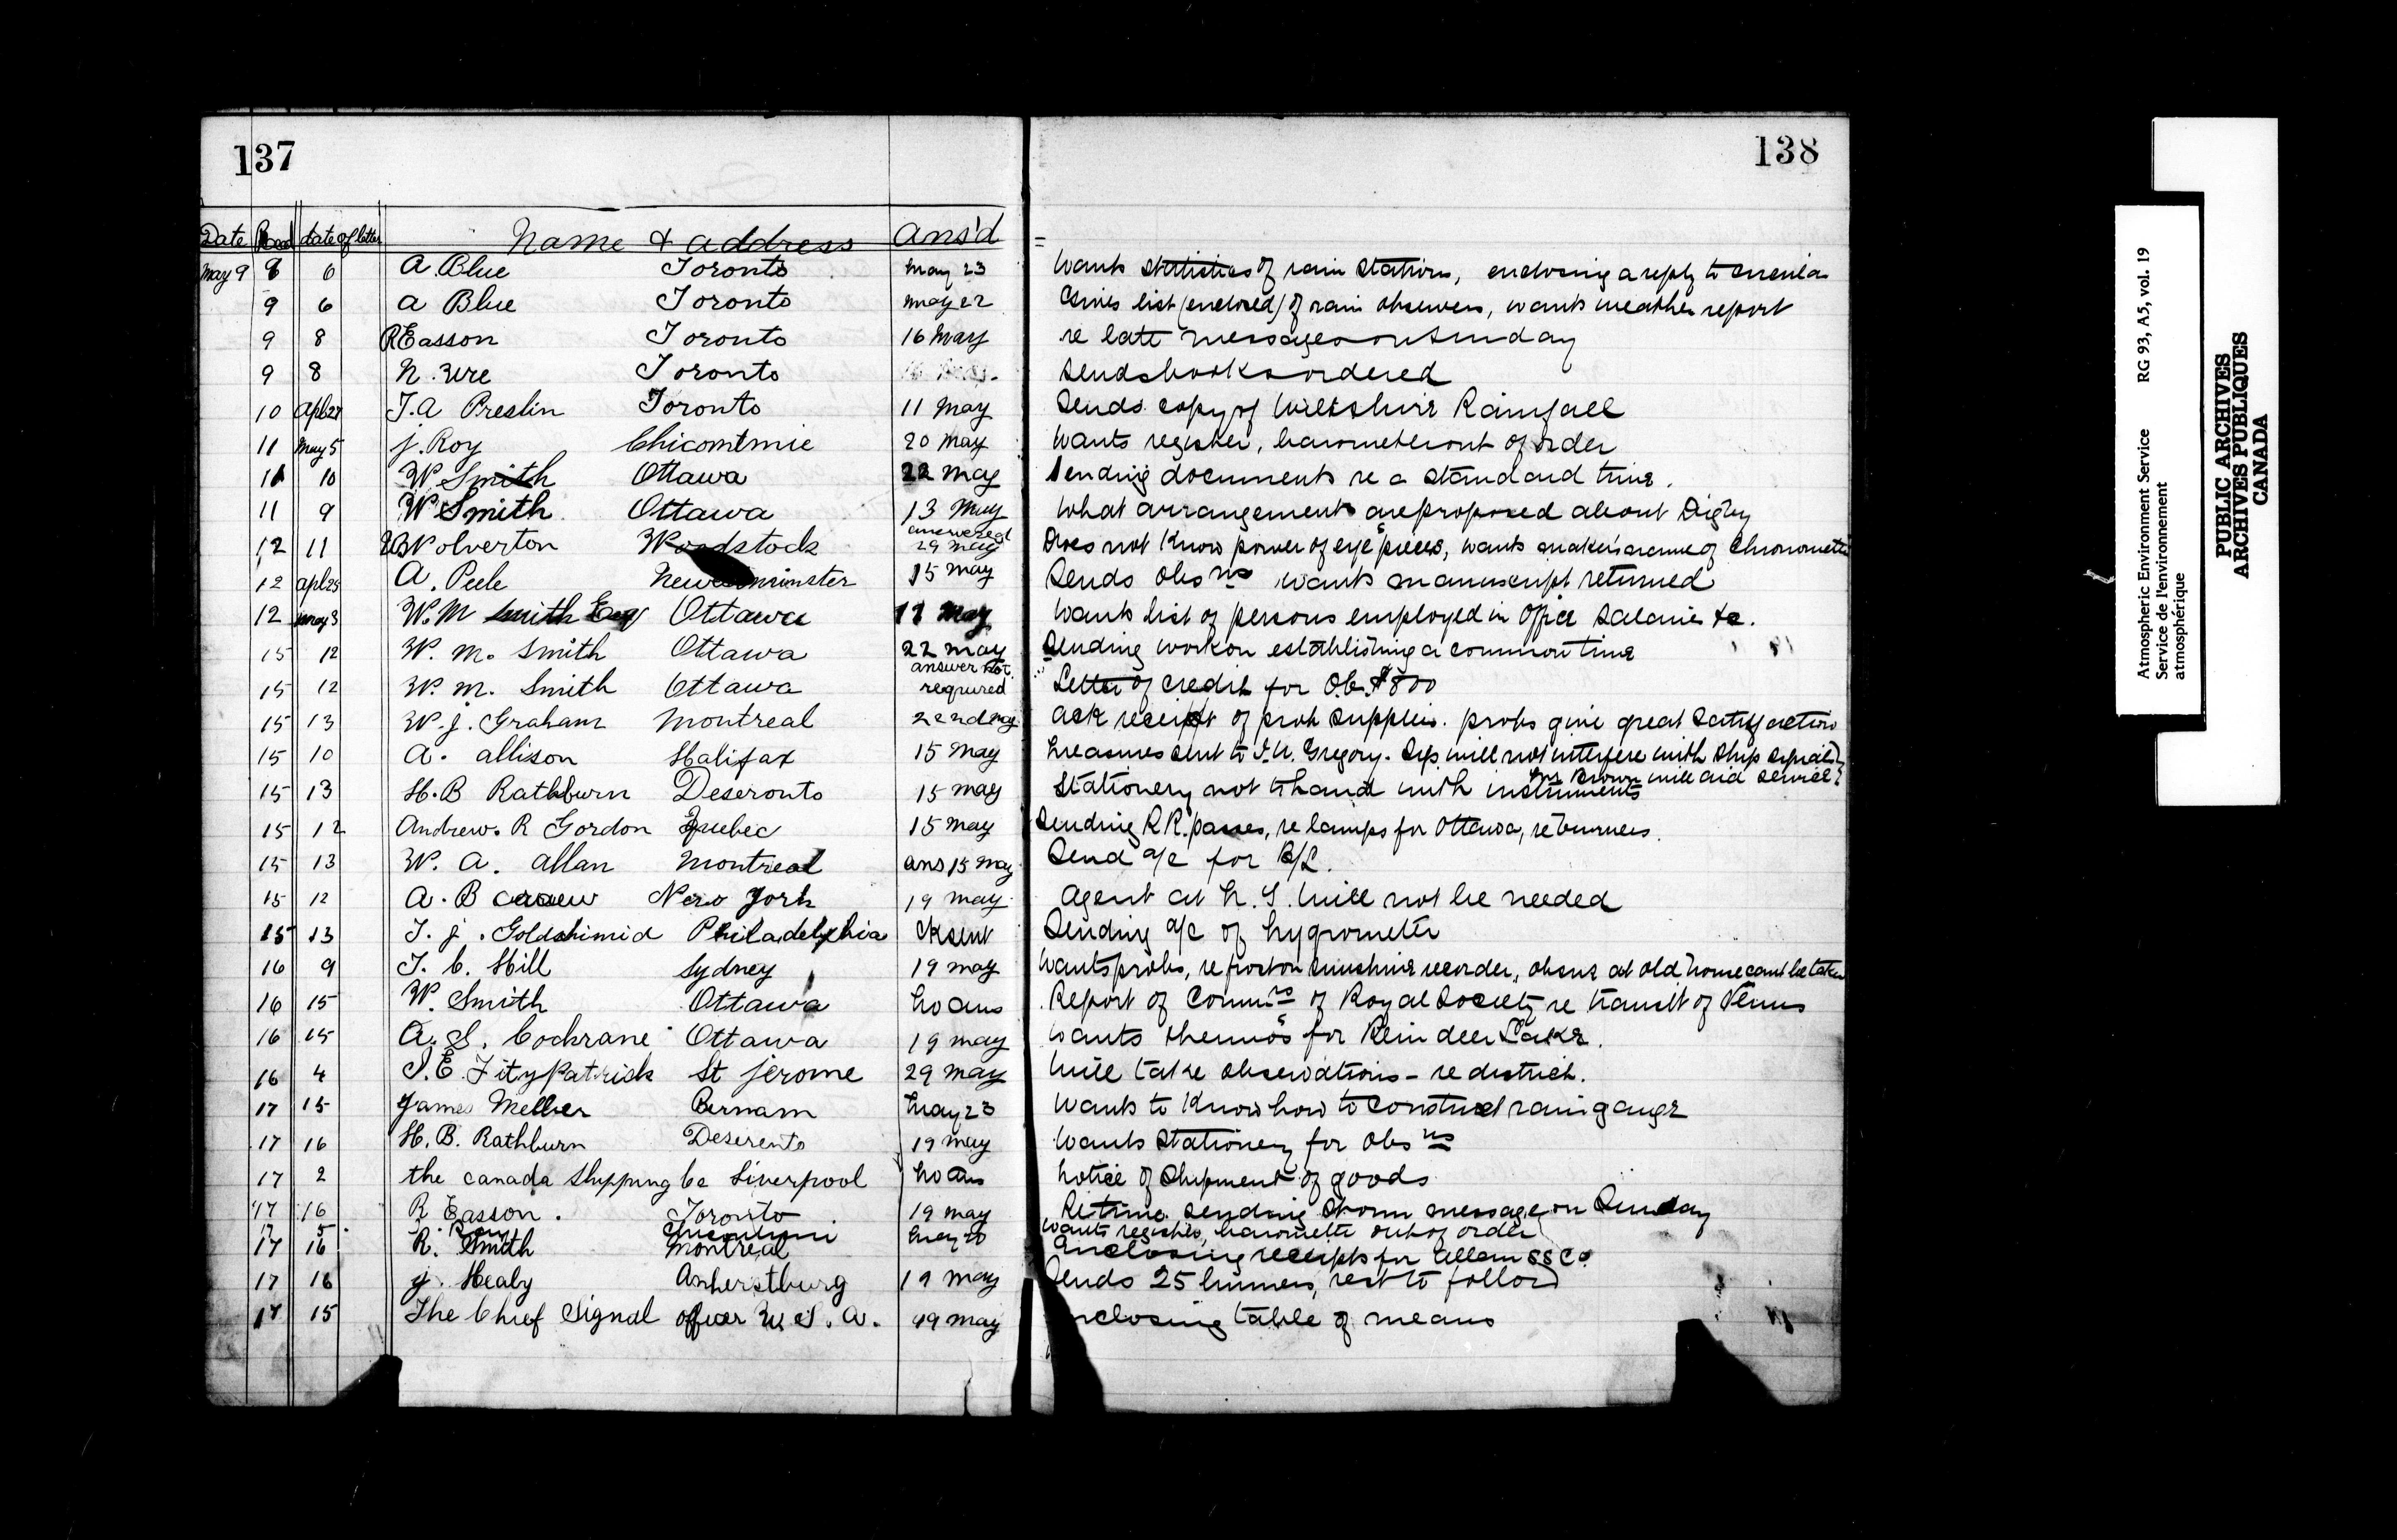 137
138
Date Recd date of letter Name & address Ans'd
May 9 8 6 A. Blue Toronto May 23 Wants statistics of rain stations, enclosing a reply to circular
9 6 A Blue Toronto May 22 Gives list (enclosed) of rain observers, wants weather report
9 8 R Easson Toronto 16 May re late messages on Sunday
9 8 N. Ure Toronto Sends books ordered
10 Apl 27 T. A Preslin Toronto 11 May Sends copy of Wiltshire Rainfall
11 May 5 J. Roy Chicomtmie 20 May Wants register, barometer out of order
11 10 W Smith Ottawa 22 May Sending documents re a standard time.
11 9 W Smith Ottawa 13 May What arrangements are proposed about Digby
12 11 Wolverton Woodstock answered 29 May Does not know power of eye pieces, wants maker's name of Chronometer
12 Apl 25 A. Peele New minster 15 May Sends Obsns wants manuscript returned
12 May 3 W. M Smith Esq Ottawa 17 May Wants list of persons employed in Office Salaries &c.
15 12 W. M. Smith Ottawa 22 May Sending work on establishing a common time
15 12 W. M. Smith Ottawa answer not required Letter of credit for O.C. $800
15 13 W. J. Graham Montreal 22nd May Ack receipt of prob supplies. probs give great satisfaction
15 10 A. Allison Halifax 15 May Treasures sent to J. U. Gregory. Sigs will not interfere with ship signals,
Mr Brown will aid service?
15 13 H. B Rathburn Deseronto 15 May Stationery not to hand with instruments
15 12 Andrew. R Gordon Quebec 15 May Sending R R. passes, re lamps for Ottawa, re burners.
15 13 W. A. Allan Montreal ans 15 May Send a/c for B/L.
15 12 A. B New York 19 May Agent at N. Y. will not be needed
15 13 T. J. Goldshimid Philadelphia Ck sent Sending a/c of hygrometer
16 9 T. C. Hill Sydney 19 May Wants probs, re frost on sunshine recorder, obsns at old home cant be taken
16 15 W. Smith Ottawa No ans Report of Commrs of Royal Society re transit of Venus
16 15 A. S. Cochrane Ottawa 19 May Wants thermos for Rein deer Lake.
16 4 J. E. Fitzpatrick St Jerome 29 May Will take observations - re district.
17 15 James Mellier Bernam May 23 Wants to know how to construct rain gauge
17 16 H. B. Rathburn Deseronto 19 May Wants stationery for Obsns
17 2 the Canada Shipping Co Liverpool No ans Notice of shipment of goods
17 16 R Easson. Toronto 19 May Re time sending storm messages on Sunday
17 5 J. Roy Chicoutimi May 20 Wants register, barometer out of order
17 16 R. Smith Montreal Enclosing receipts for Allan SS Co
17 16 J. Healy Amherstburg 19 May Sends 25 burners, rest to follow
17 15 The Chief Signal officer U. S. A. 19 May nclosing table of means
Atmospheric Environment Service RG 93, A5, vol. 19
Service de l'environnement
atmosphérique
PUBLIC ARCHIVES
ARCHIVES PUBLIQUES
CANADA